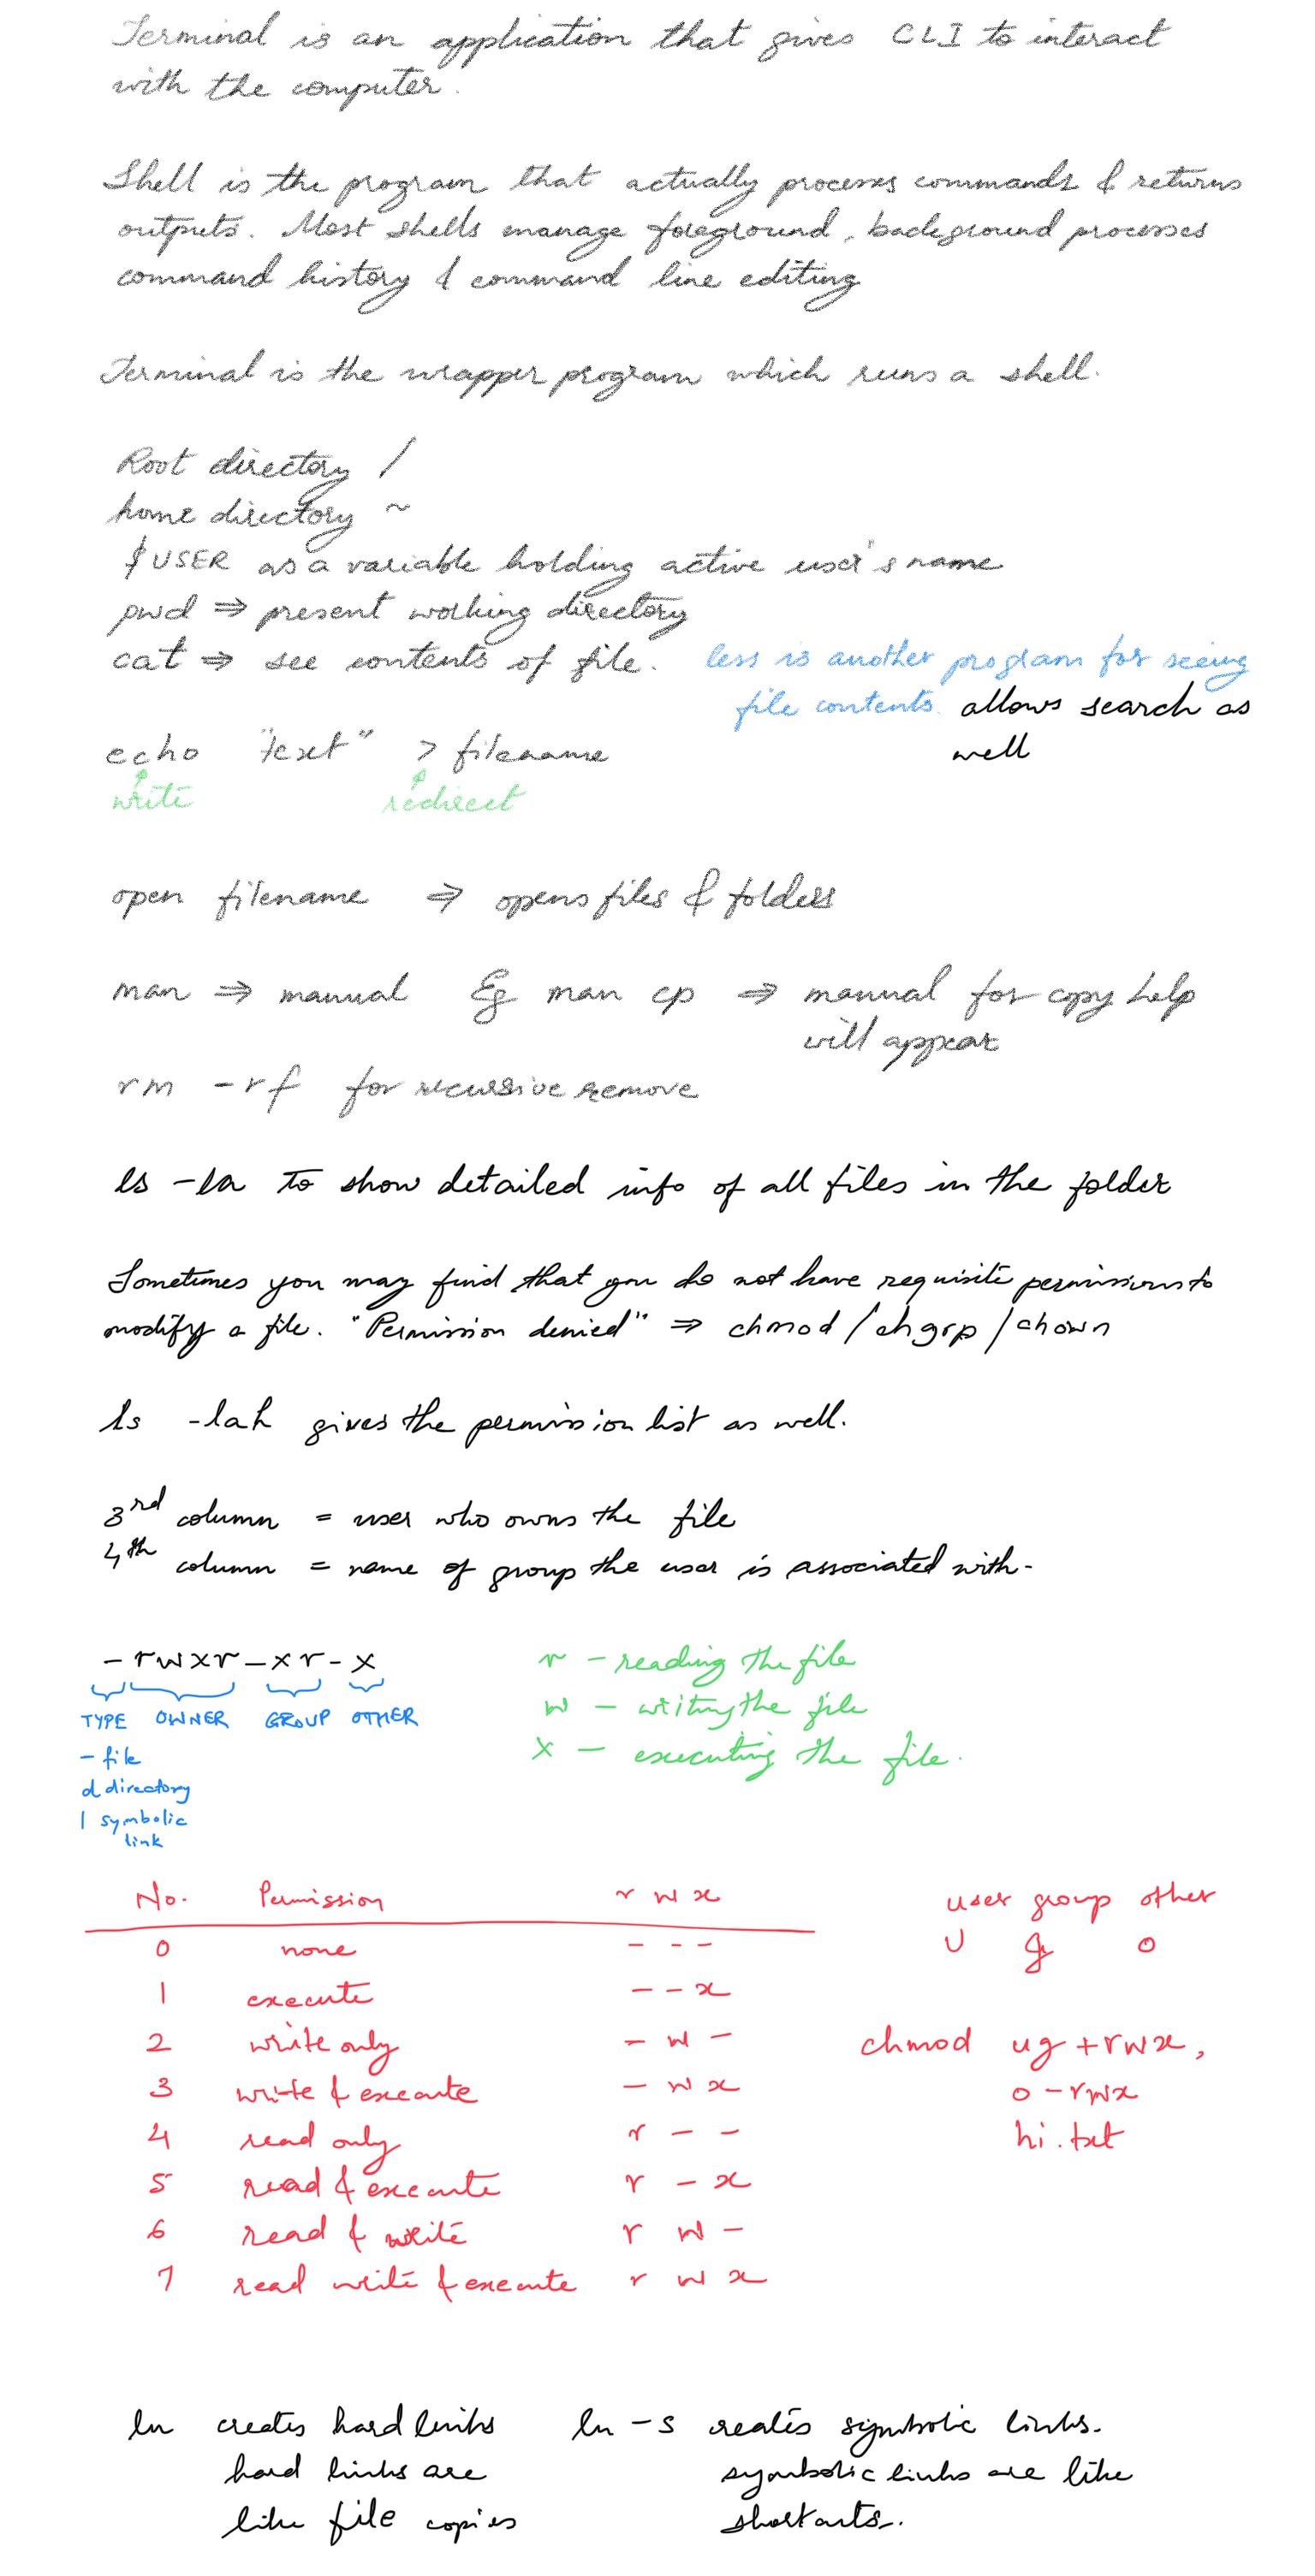 Terminal is an application that gives CLI to interact
with the computer.
Shell is the program that actually processes commands & returns
outputs. Most shells manage foreground, background processes
command history & command line editing
Terminal is the wrapper program which runs a shell.
Root directory /
home directory ~
$USER as a variable holding active user's name
pwd ⇒ present working directory
cat ⇒ see contents of file. less is another program for seeing
file contents. allows search as
well
echo "text" > filename
write redirect
open filename ⇒ opens files & folders
man ⇒ manual Eg man cp ⇒ manual for copy help
will appear
rm -rf for recursive remove
ls -la to show detailed info of all files in the folder
Sometimes you may find that you do not have requisite permissions to
modify a file. "Permission denied" ⇒ chmod/chgrp/chown
ls -lah gives the permission list as well.
3rd column = user who owns the file
4th column = name of group the user is associated with-
-rwxr-xr-x
TYPE OWNER GROUP OTHER
- file
d directory
l symbolic
link
r - reading the file
w - writing the file
x - executing the file.
No. Permission r w x
0 none - - -
1 execute - - x
2 write only - w -
3 write & execute - w x
4 read only r - -
5 read & execute r - x
6 read & write r w -
7 read write & execute r w x
user group other
U g o
chmod ug+rwx,
o-rwx
hi.txt
ln creates hard links
hard links are
like file copies
ln -s creates symbolic links.
symbolic links are like
shortcuts.